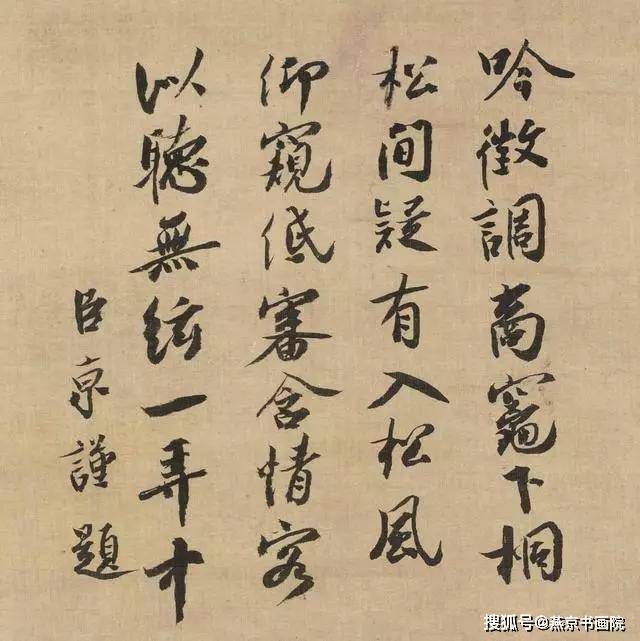 吟徵調商竈下桐
松間疑有入松風
仰窺低審含情客
以聽無絃一弄中
臣京謹題
搜狐号@燕京书画院